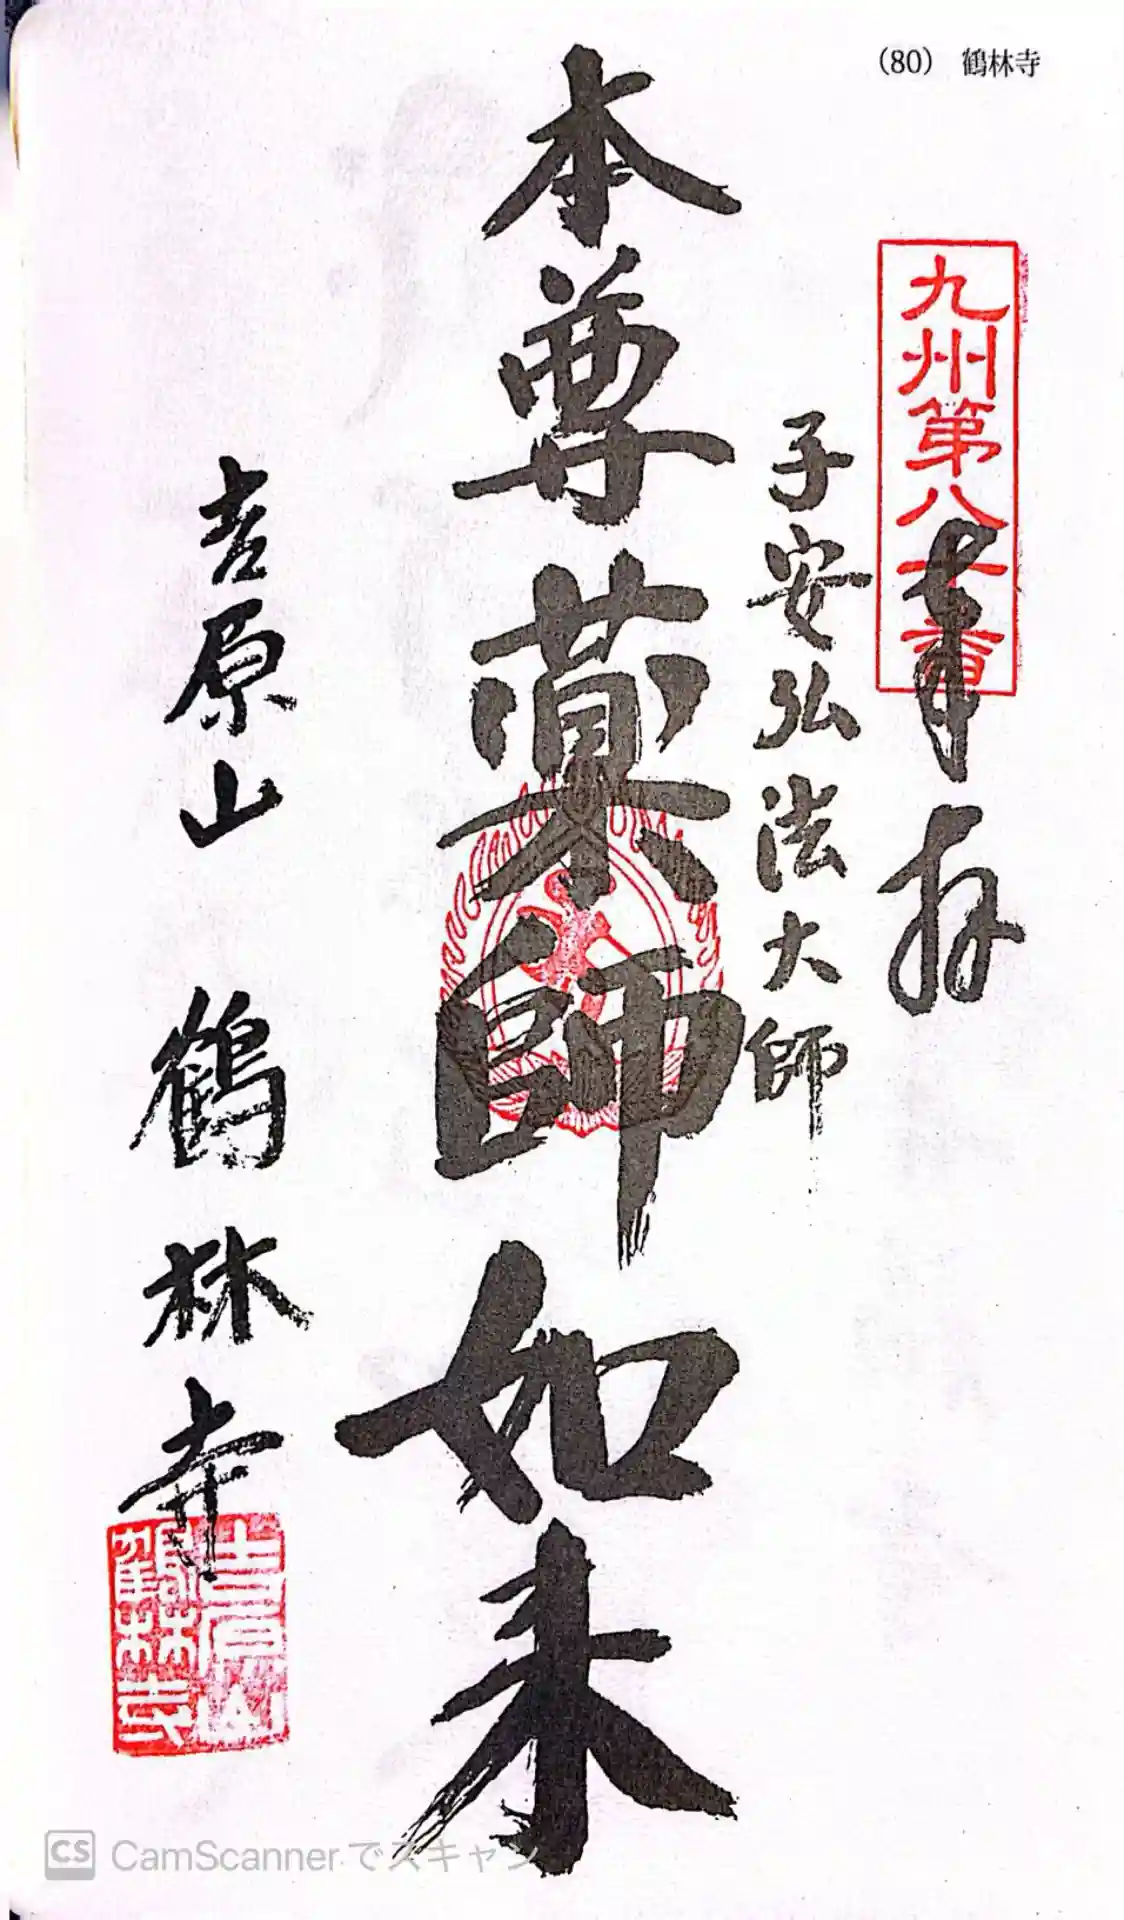 (80) 鶴林寺
九州第八十番
奉拝
子安弘法大師
本尊薬師如来
吉原山 鶴林寺
吉原山
鶴林寺
CS CamScannerでスキャン